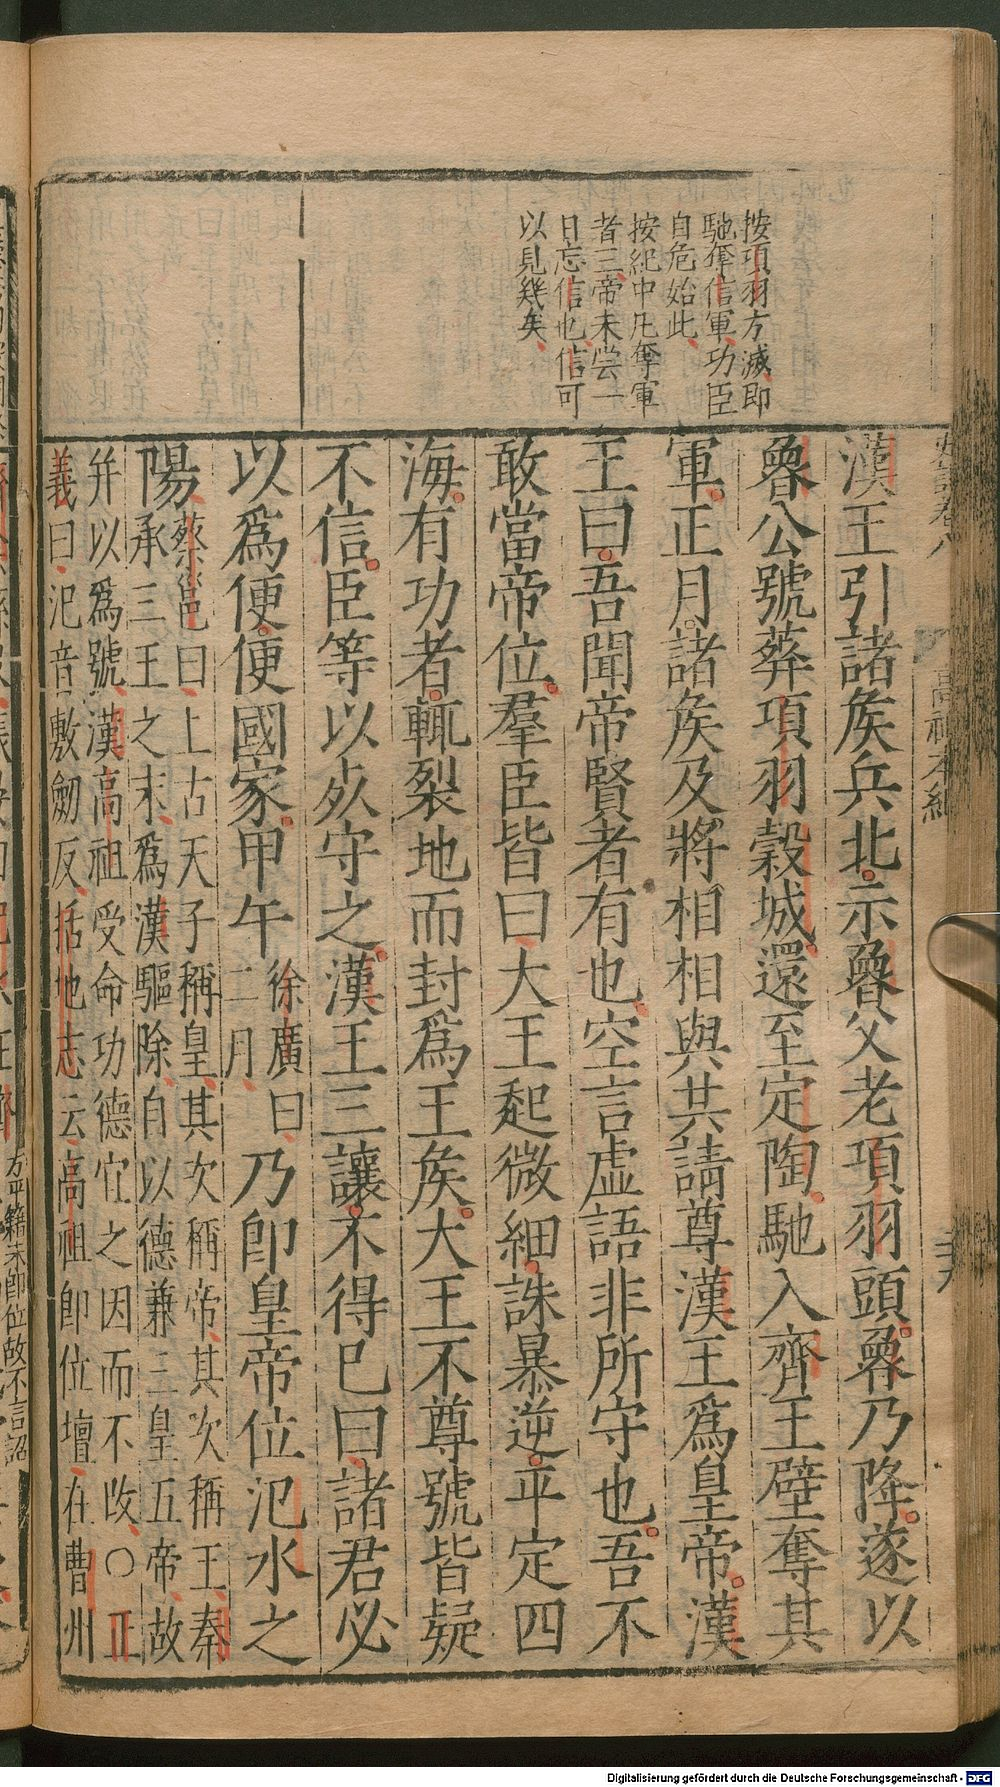 按項羽方滅即
馳奪信軍功臣
自危始此
按紀中凡奪軍
者三帝未嘗一
日忘信也信可
以見幾矣
漢王引諸矦兵北示魯父老項羽頭魯乃降遂以
魯公號葬項羽穀城還至定陶馳入齊王壁奪其
軍正月諸矦及將相相與共請尊漢王爲皇帝漢
王曰吾聞帝賢者有也空言虛語非所守也吾不
敢當帝位羣臣皆曰大王起微細誅暴逆平定四
海有功者輒裂地而封爲王矦大王不尊號皆疑
不信臣等以死守之漢王三讓不得已曰諸君必
以爲便便國家甲午
徐廣曰
二月
乃即皇帝位氾水之
陽
蔡邕曰上古天子稱皇其次稱帝其次稱王秦
承三王之末爲漢驅除自以德兼三皇五帝故
并以爲號漢高祖受命功德宜之因而不改○正
義曰氾音敷劒反括地志云高祖即位壇在曹州
高祖本紀
方平籍未即位故不言詔
Digitalisierung gefördert durch die Deutsche Forschungsgemeinschaft - DFG